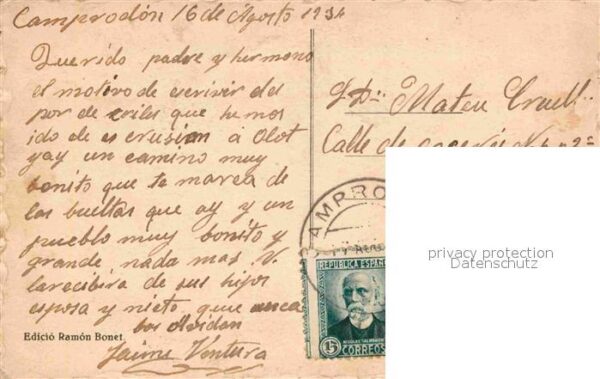 Camprodón 16 de Agosto 1934
Querido padre y hermono
el motivo de escrivir del
por de criles que hemos
ido de es crusion a Olot
yay un camino muy
bonito que te marea de
las bueltas que ay y un
pueblo muy bonito y
grande nada mas. V.
la recibira de sus hijos
esposa y nieto que
olvidan
Jaime Ventura
Edició Ramón Bonet.
Mateu
Calle de
CAMPRO
REPUBLICA ESPAÑ
15
CORREOS
privacy protection
Datenschutz